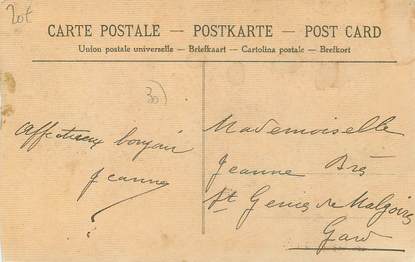 20f
CARTE POSTALE — POSTKARTE — POST CARD
Union postale universelle — Briefkaart — Cartolina postale — Brefkort
30
Affectueux bonjour
Jeanne
Mademoiselle
Jeanne Brès
St Genies de Malgoires
Gard